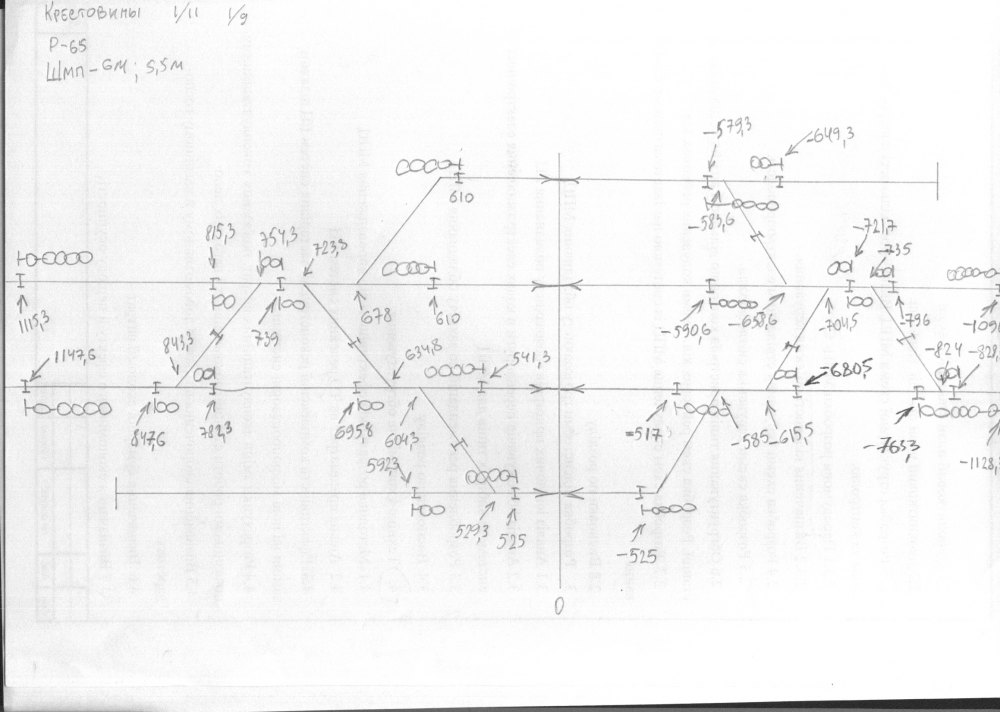 Крестовины 1/11 1/9
Р-65
Шмп - 6м; 5,5м
-579,3
-649,3
610
-583,6
815,3
754,3
723,3
-721,7
-735
1115,3
739
678
610
-590,6
-658,6
-704,5
-796
1147,6
843,3
634,8
541,3
-680,5
-824
847,6
782,3
695,8
604,3
-517
-585
-615,5
-763,3
592,3
529,3
525
-525
0